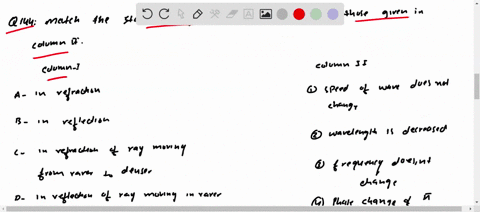 Q144: match the sta those given in
column II.
column-I
column II
A- in refraction
(1) speed of wave does not
change,
B- in reflection
(2) wavelength is decreased
C- in refraction of ray moving
from rarer to denser
(3) frequency does,nt
change
D- in reflection of ray moving in rarer
(4) Phase change of π